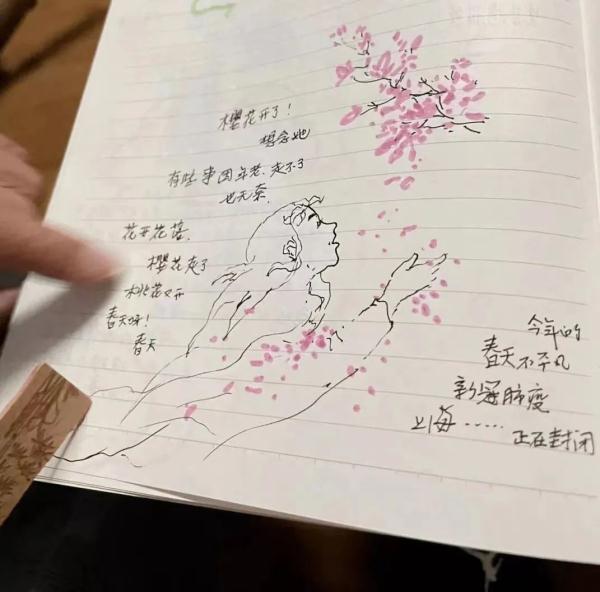 樱花开了！
想念她
有些事因年老、走不了
也无奈.
花开花落.
樱花走了
桃花又开
春天呀！
春天
今年的
春天不平凡
新冠肺疫
上海……正在封闭